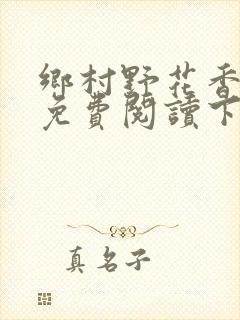 鄉村野花香
免費閱讀下
真名子